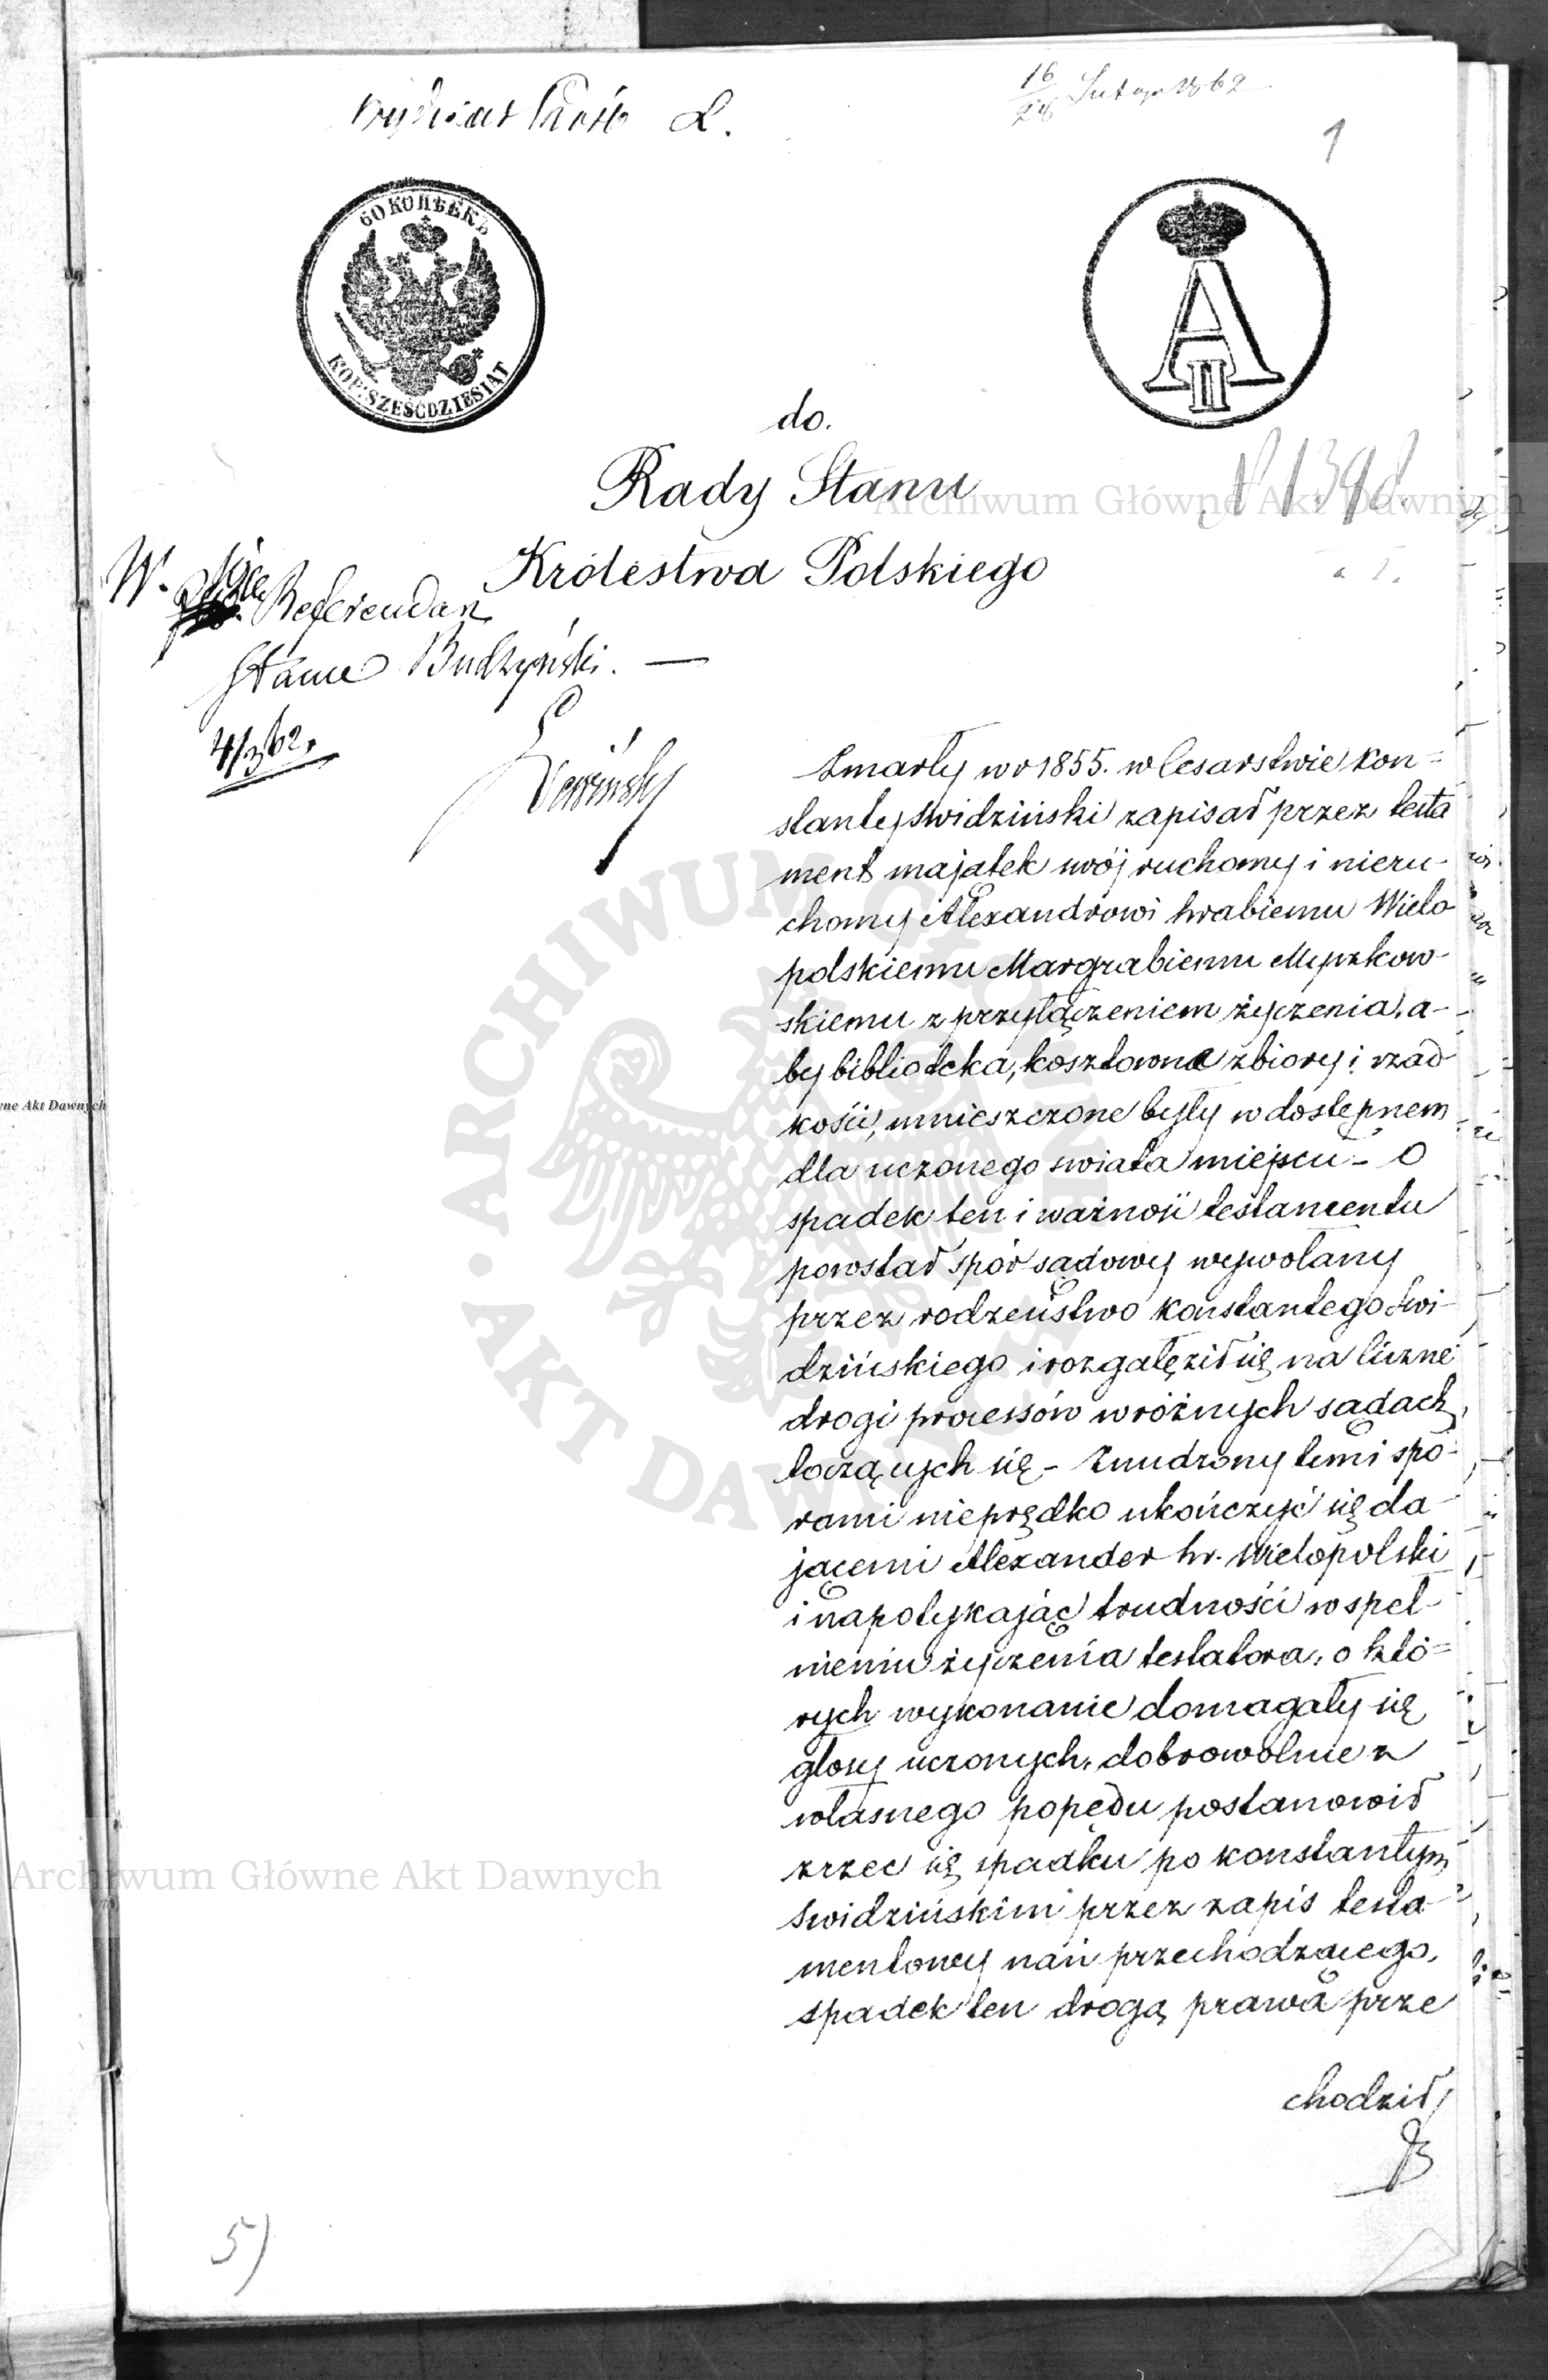 Wydział Próśb L.
16/28 Lutego 1862
1
60 КОПѢЕКЪ
KOP: SZEŚĆDZIESIĄT
A II
do.
Rady Stanu
Królestwa Polskiego
N 139 d.
W. Referendarz
Stanu Budzyński. —
4/3 62.
Zmarły w r 1855. w Cesarstwie Kon=
stanty Swidziński zapisał przez testa
ment majątek swój ruchomy i nieru-
chomy Alexandrowi hrabiemu Wielo
polskiemu Margrabiemu Myszkow-
skiemu z przyłączeniem życzenia, a-
by biblioteka, kosztowne zbiory i rzad
kości, umieszczone były w dostępnem
dla uczonego swiata miejscu – O
spadek ten i ważność testamentu
powstał spór sądowy wywołany
przez rodzeństwo Konstantego Swi-
dzińskiego i rozgałęził się na liczne
drogi processów w różnych sądach
toczących się – Znudzony temi spo-
rami nieprędko ukończyć się da-
jącemi Alexander hr. Wielopolski
i napotykając trudności w speł-
nieniu życzenia testatora, o któ=
rych wykonanie domagały się
głosy uczonych, dobrowolnie z
własnego popędu postanowił
zrzec się spadku po Konstantym
Swidzińskim przez zapis testa-
mentowy nań przechodzącego,
spadek ten drogą prawa prze
chodził
5)
Archiwum Główne Akt Dawnych
wne Akt Dawnych
ARCHIWUM GŁÓWNE AKT DAWNYCH
Archiwum Główne Akt Dawnych